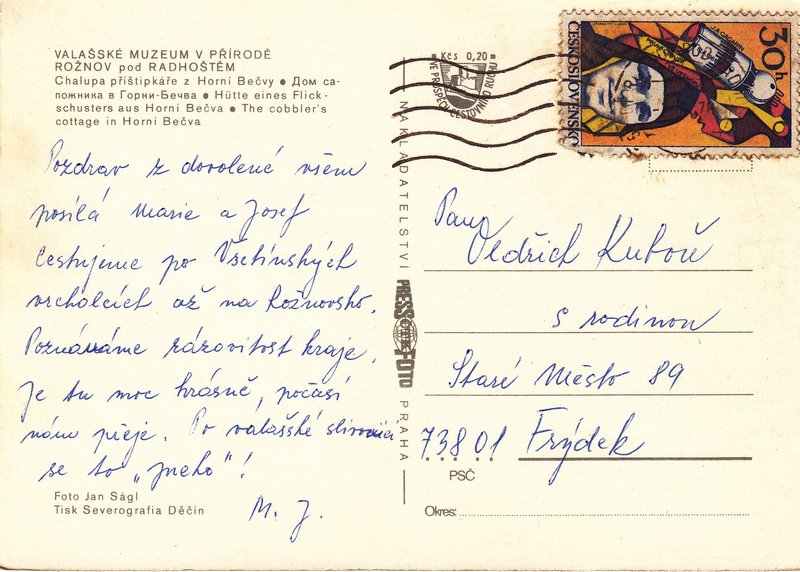 VALAŠSKÉ MUZEUM V PŘÍRODĚ
ROŽNOV pod RADHOŠTĚM
Chalupa příštipkáře z Horní Bečvy ● Дом са-
пожника в Горни-Бечва ● Hütte eines Flick-
schusters aus Horní Bečva ● The cobbler's
cottage in Horní Bečva
Pozdrav z dovolené všem
posílá Marie a Josef
Cestujeme po Vsetínských
vrcholcích až na Rožnovsko.
Poznáváme rázovitost kraje.
Je tu moc krásně, počasí
nám přeje. Po valašské slivovici
se to „jneho"!
M. J.
Foto Jan Ságl
Tisk Severografia Děčín
NAKLADATELSTVÍ
PRESSFOTO
PRAHA
Kčs 0,20
VE PROSPĚCH CESTOVNÍHO RUCHU
ČESKOSLOVENSKO
30h
J.A.GAGARIN
Panu
Oldřich Kuboň
s rodinou
Staré Město 89
73801 Frýdek
PSČ
Okres: